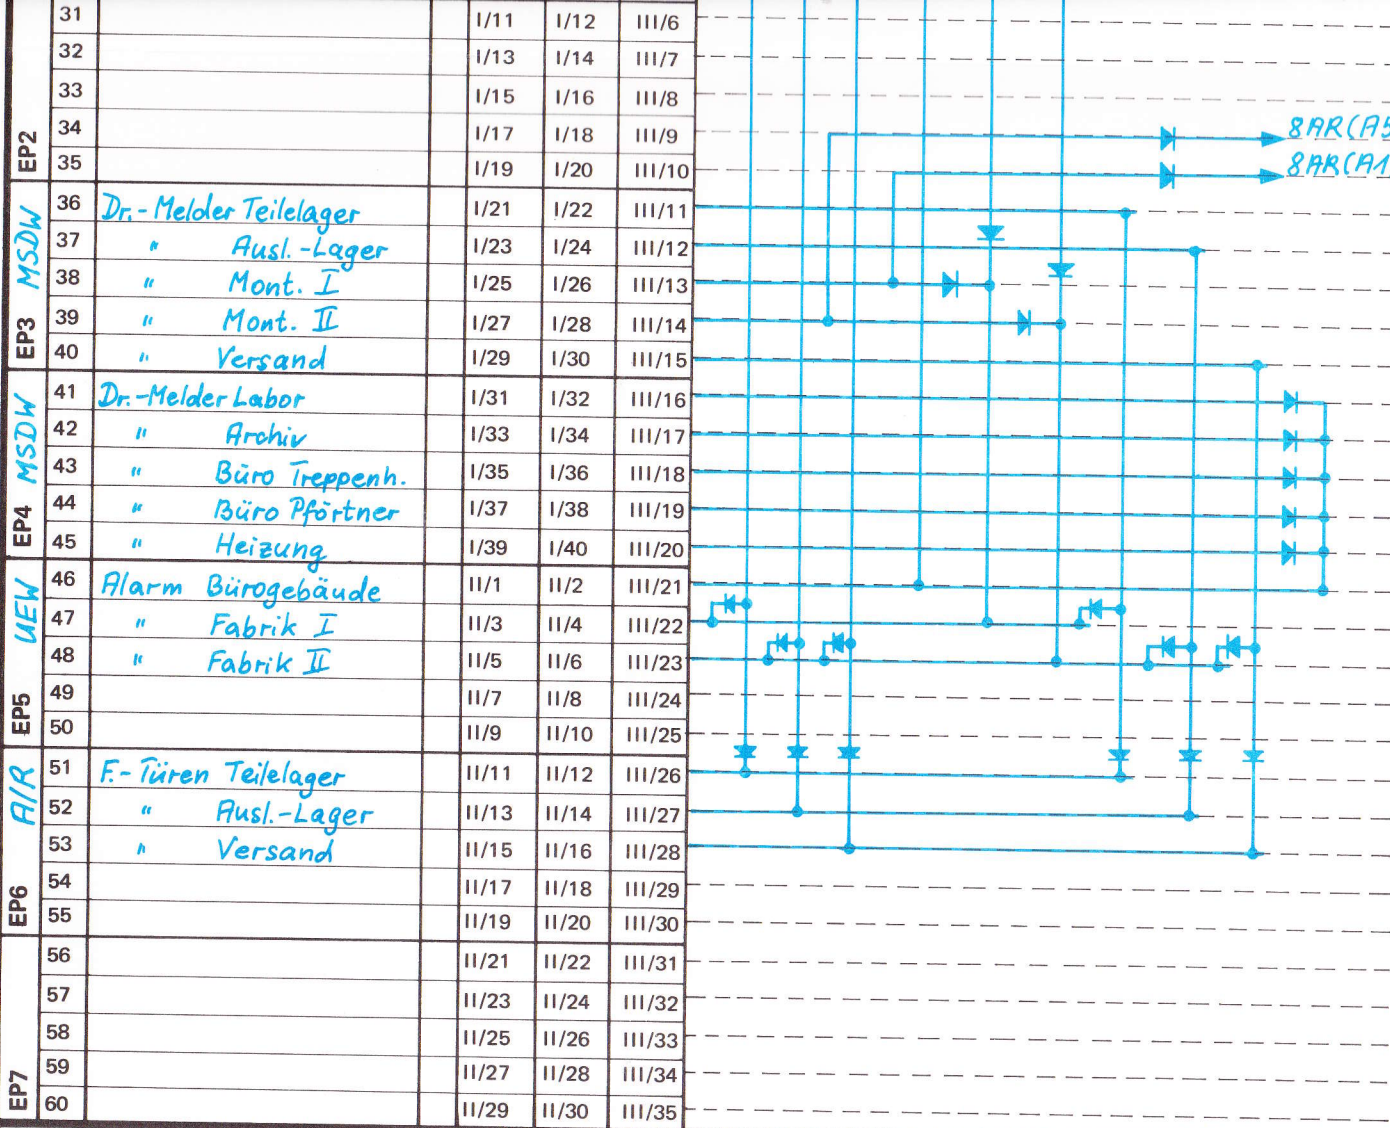 31 I/11 I/12 III/6
32 I/13 I/14 III/7
33 I/15 I/16 III/8
34 I/17 I/18 III/9 8AR(A5
EP2
35 I/19 I/20 III/10 8AR(A1
36 Dr.-Melder Teilelager I/21 I/22 III/11
MSDW
37 " Ausl.-Lager I/23 I/24 III/12
38 " Mont. I I/25 I/26 III/13
39 " Mont. II I/27 I/28 III/14
EP3
40 " Versand I/29 I/30 III/15
41 Dr.-Melder Labor I/31 I/32 III/16
MSDW
42 " Archiv I/33 I/34 III/17
43 " Büro Treppenh. I/35 I/36 III/18
44 " Büro Pförtner I/37 I/38 III/19
EP4
45 " Heizung I/39 I/40 III/20
46 Alarm Bürogebäude II/1 II/2 III/21
UEW
47 " Fabrik I II/3 II/4 III/22
48 " Fabrik II II/5 II/6 III/23
49 II/7 II/8 III/24
EP5
50 II/9 II/10 III/25
51 F.-Türen Teilelager II/11 II/12 III/26
A/R
52 " Ausl.-Lager II/13 II/14 III/27
53 " Versand II/15 II/16 III/28
54 II/17 II/18 III/29
EP6
55 II/19 II/20 III/30
56 II/21 II/22 III/31
57 II/23 II/24 III/32
58 II/25 II/26 III/33
59 II/27 II/28 III/34
EP7
60 II/29 II/30 III/35